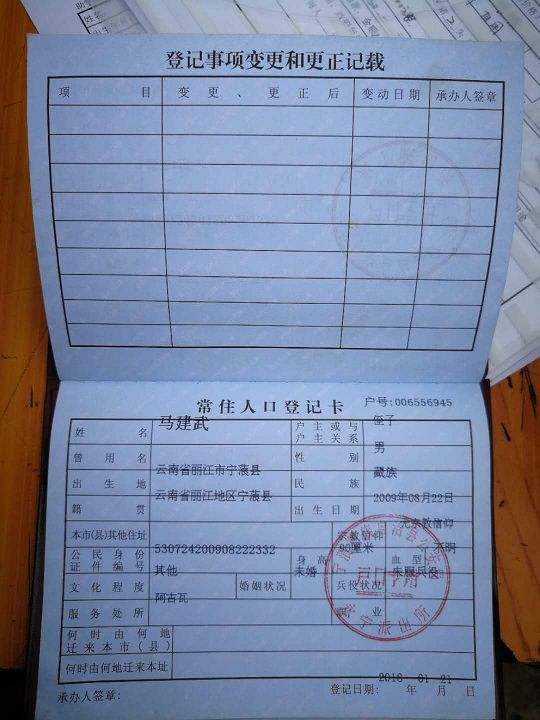 登记事项变更和更正记载
项 目 变 更 、 更 正 后 变动日期 承办人签章
常 住 人 口 登 记 卡
户号:006556945
姓 名 马建武 户 主 或 与 户 主 关 系 侄子
曾 用 名 性 别 男
出 生 地 云南省丽江市宁蒗县 民 族 藏族
籍 贯 云南省丽江地区宁蒗县 出 生 日 期 2009年08月22日
本市(县)其他住址 宗教信仰 无宗教信仰
公 民 身 份 证 件 编 号 530724200908222332 身 高 90厘米 血 型 不明
文 化 程 度 其他 婚姻状况 未婚 兵役状况 未服兵役
服 务 处 所 阿古瓦 职 业
何 时 由 何 地 迁 来 本 市 ( 县 )
何时由何地迁来本址
承办人签章: 登记日期: 年 月 日
01 21